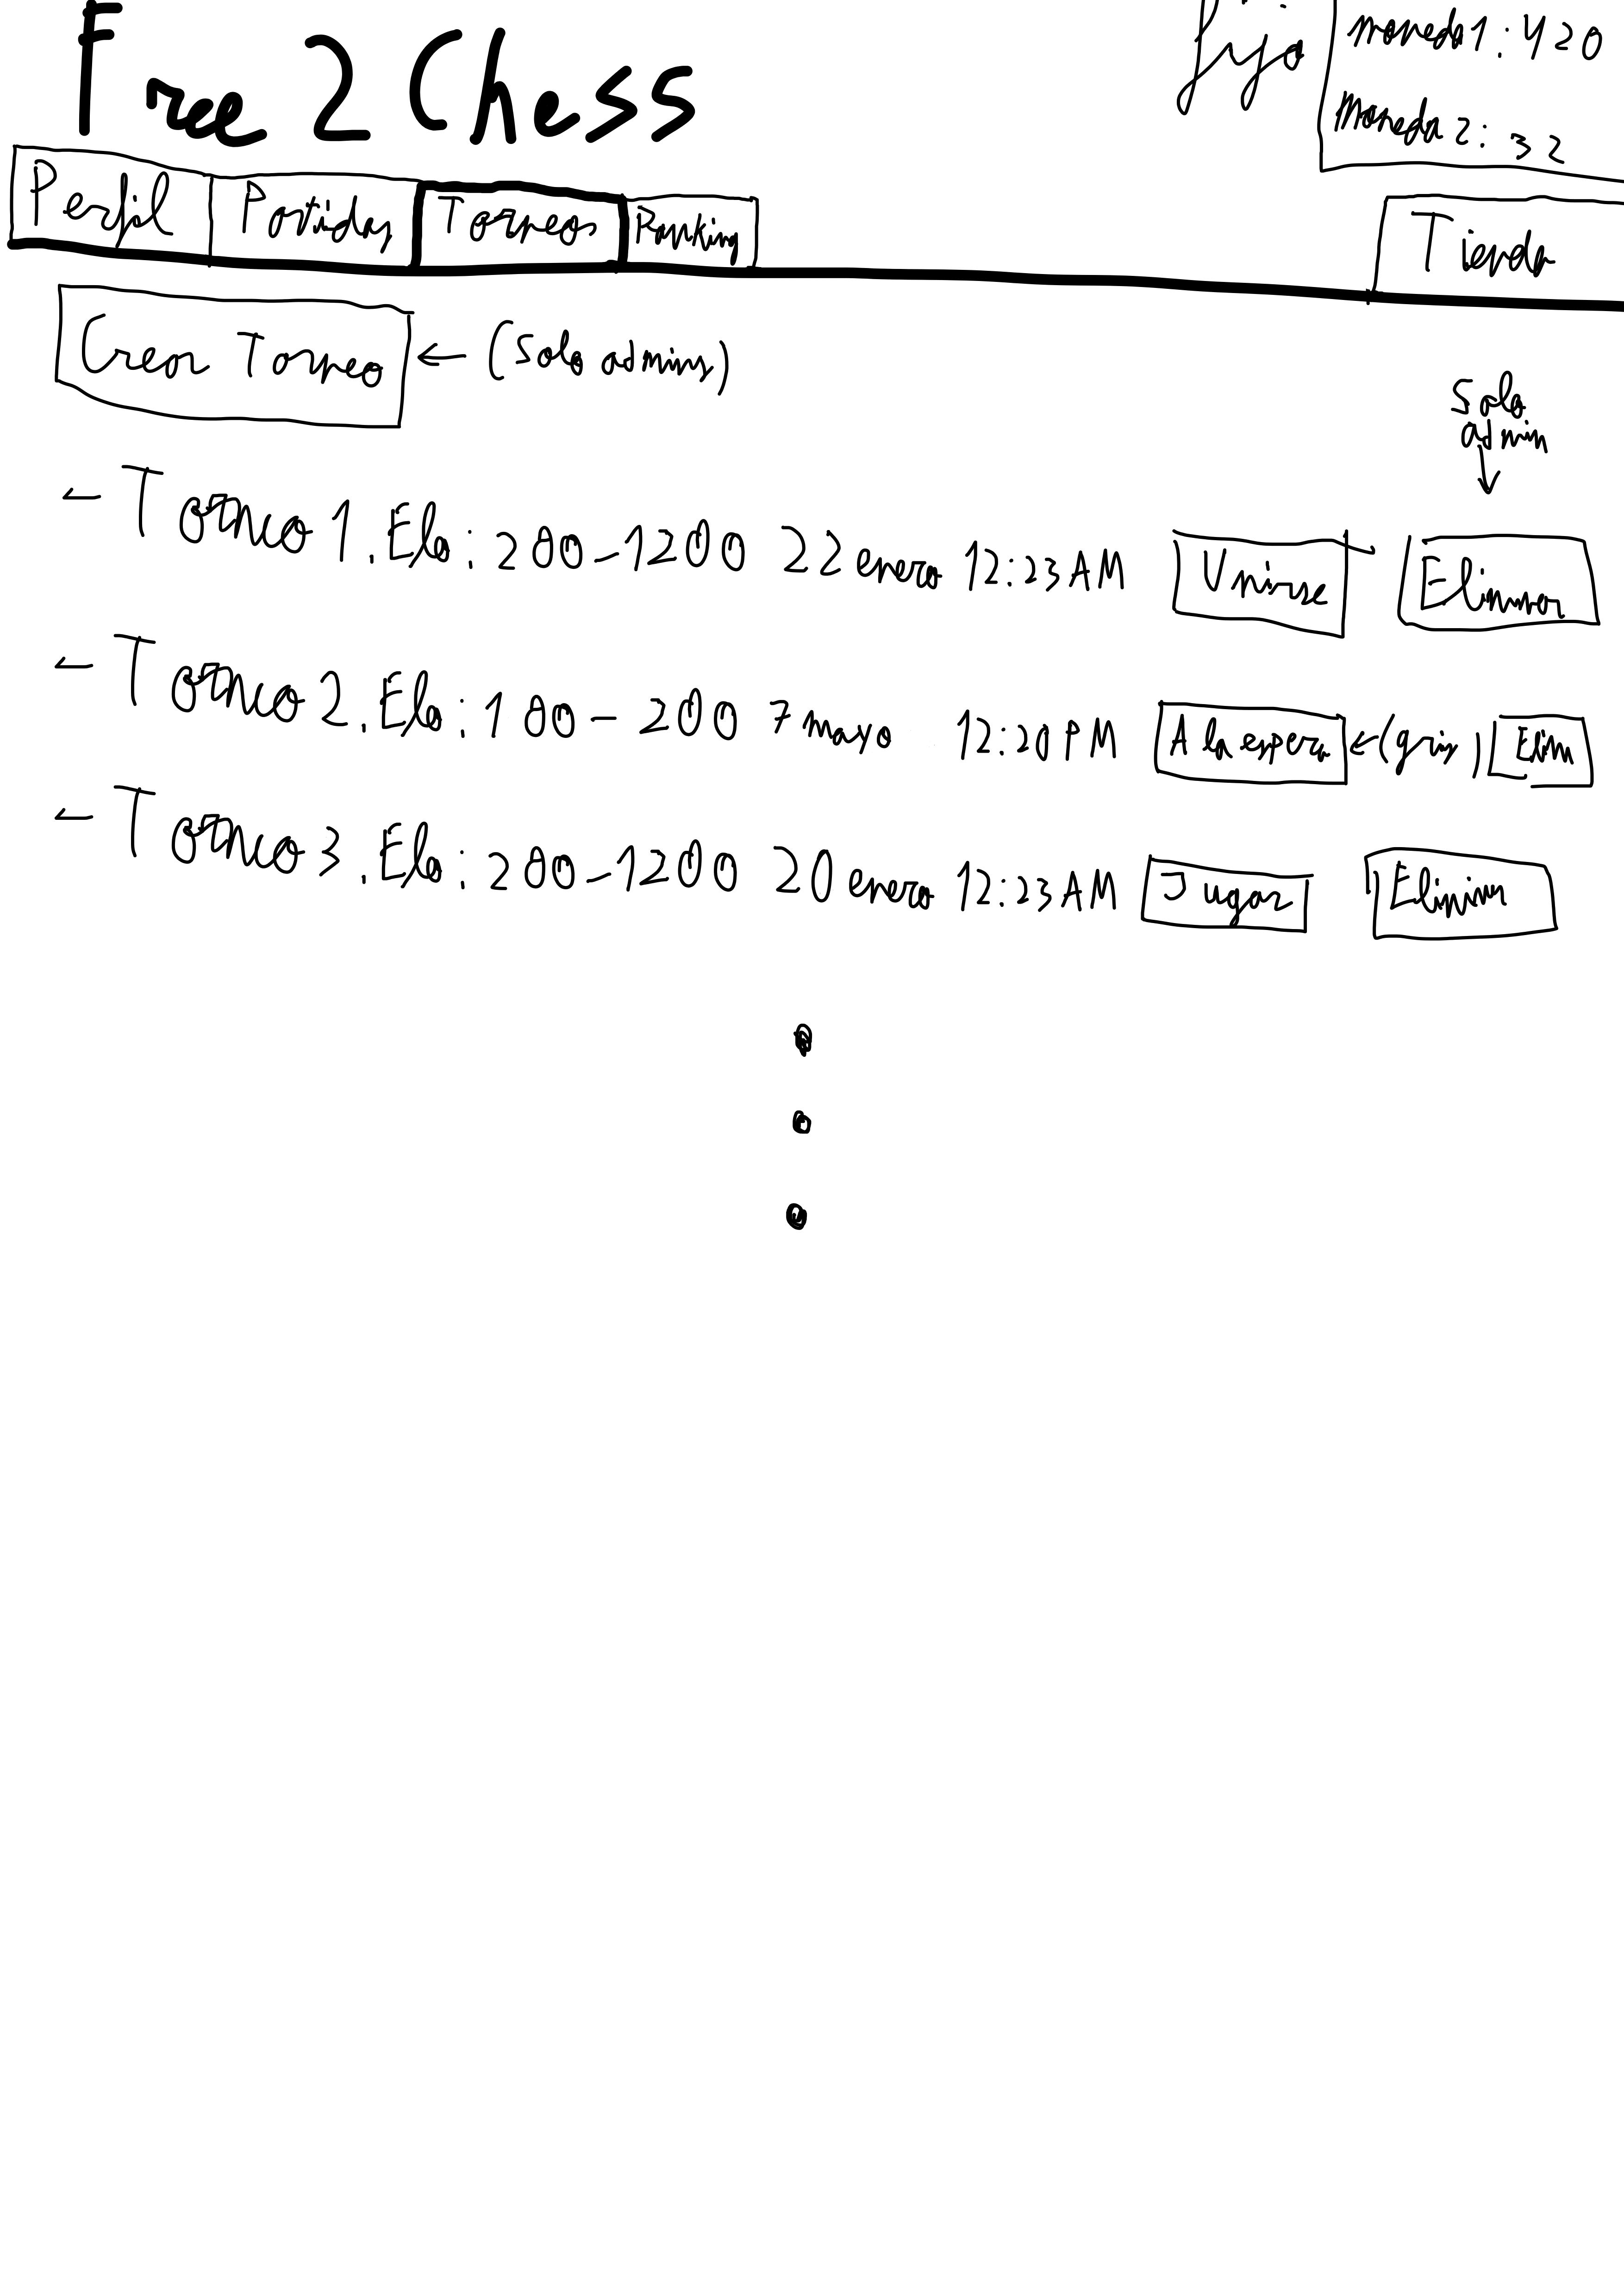 Free 2 Chess
fija
moneda1: 420
moneda 2: 32
Perfil Partidas Torneos Ranking Tienda
Crear Torneo ← (Solo admin)
Solo
admin
- Torneo 1. Elo: 200-1200 22 enero 12:23 AM Unirse Eliminar
- Torneo 2. Elo: 100-200 7 mayo 12:20 PM A la espera ← (gris) Elim
- Torneo 3. Elo: 200-1200 20 enero 12:23 AM Jugar Eliminar